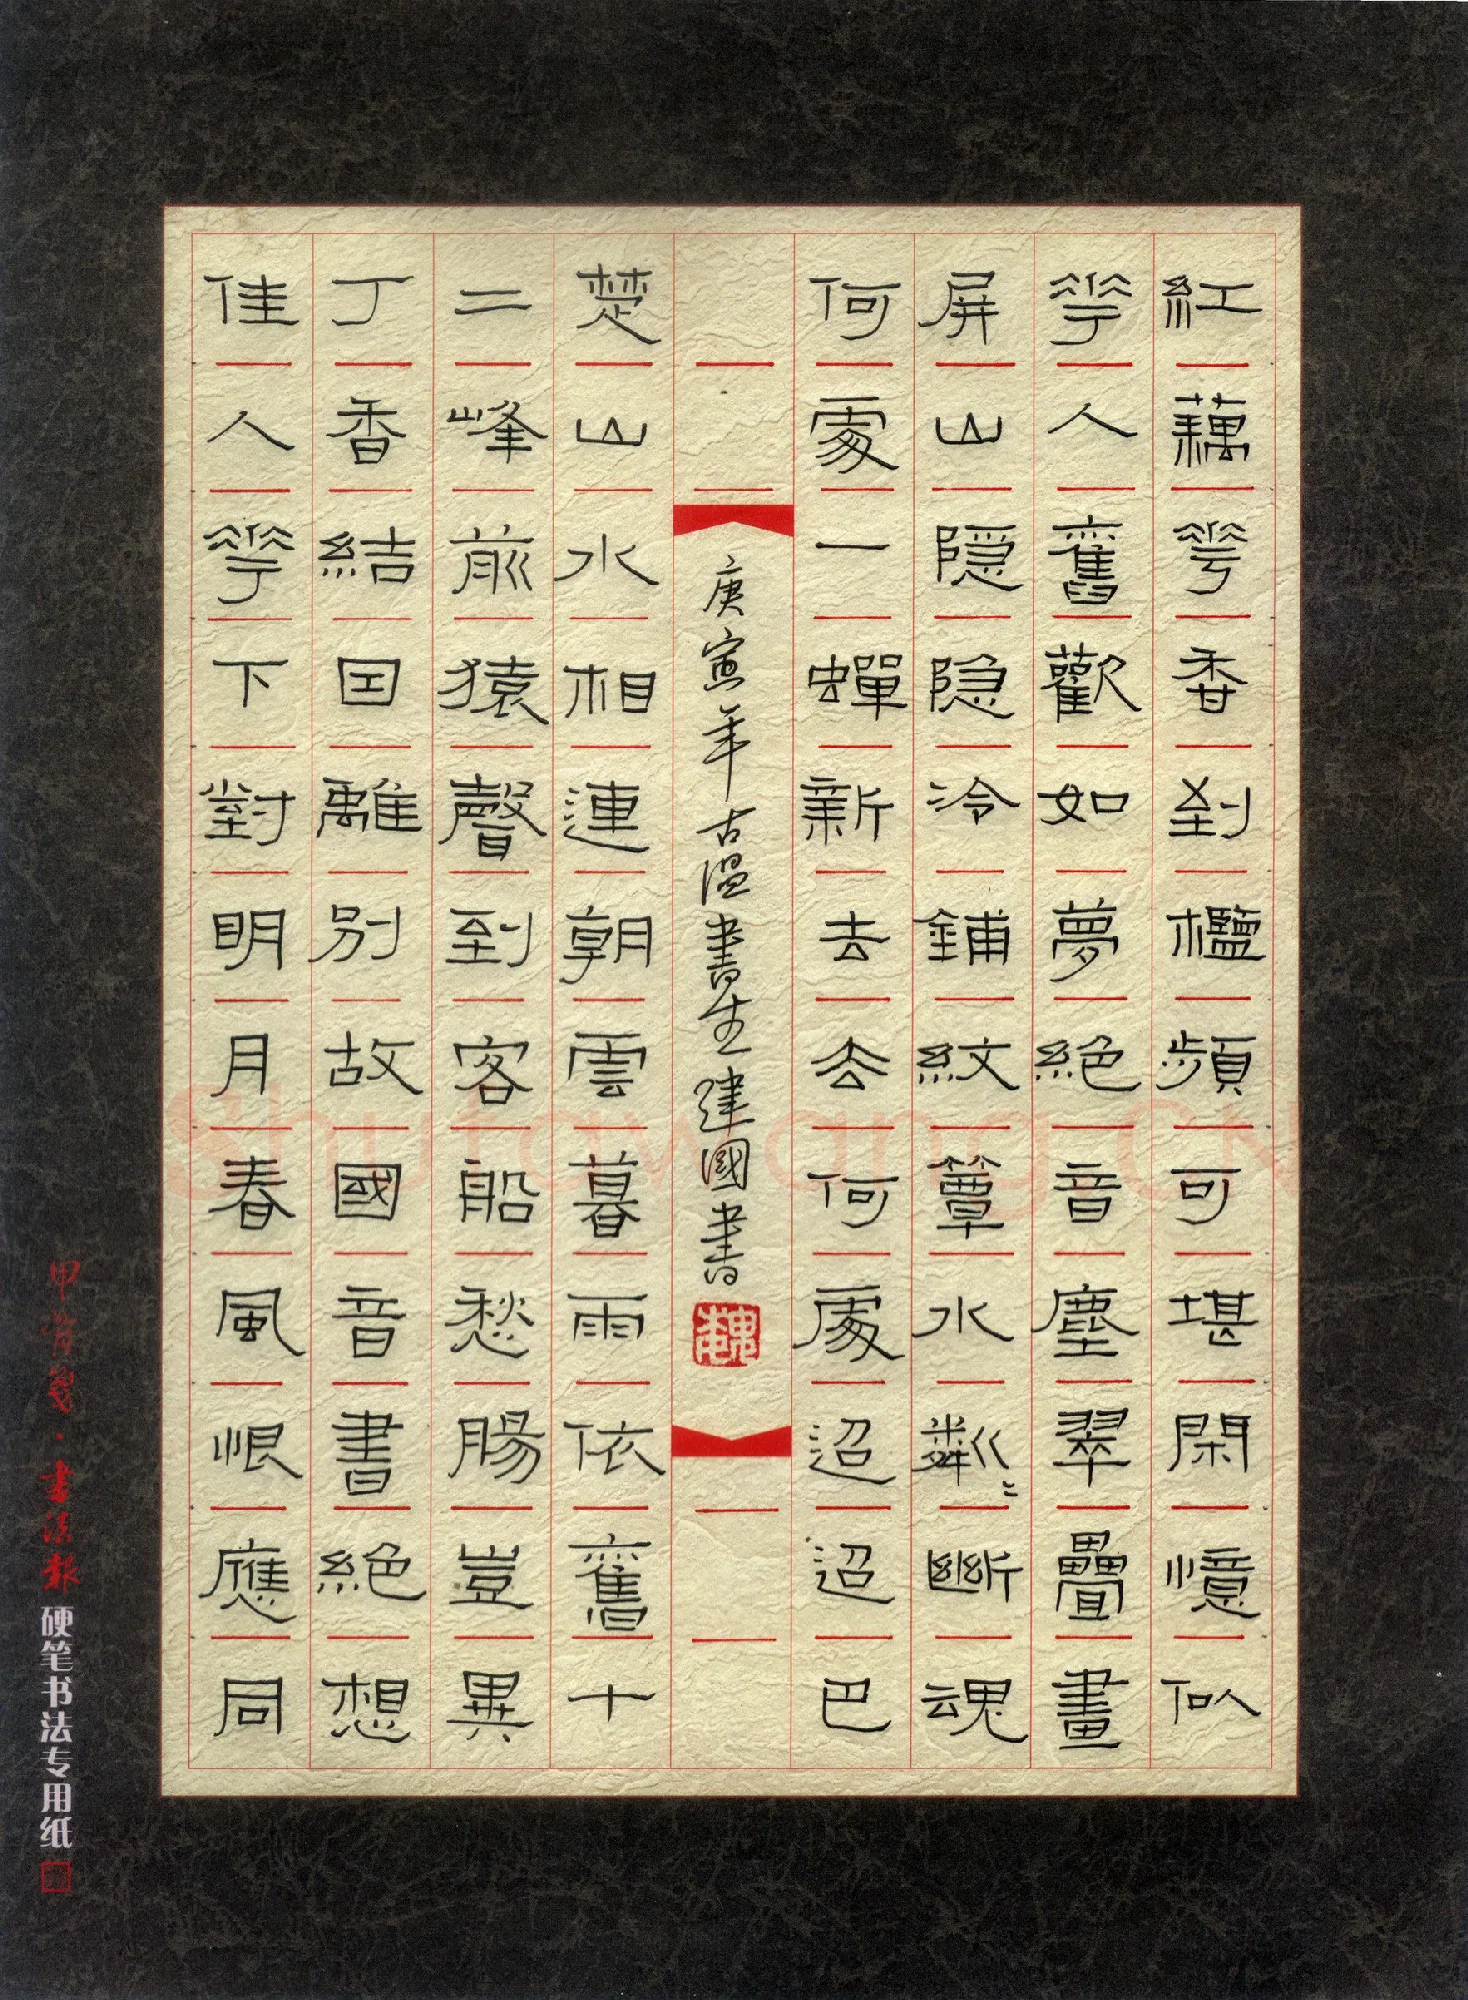 紅藕花香到檻頻可堪閑憶似
花人舊歡如夢絕音塵翠疊畫
屏山隱隱冷鋪紋簟水粼〻斷魂
何處一蟬新去去何處迢迢巴
庚寅年古温書生建國書
楚山水相連朝雲暮雨依舊十
二峰前猿聲到客船愁腸豈異
丁香結因離別故國音書絕想
佳人花下對明月春風恨應同
甲骨箋·書法報硬笔书法专用纸
Shufawang.CN